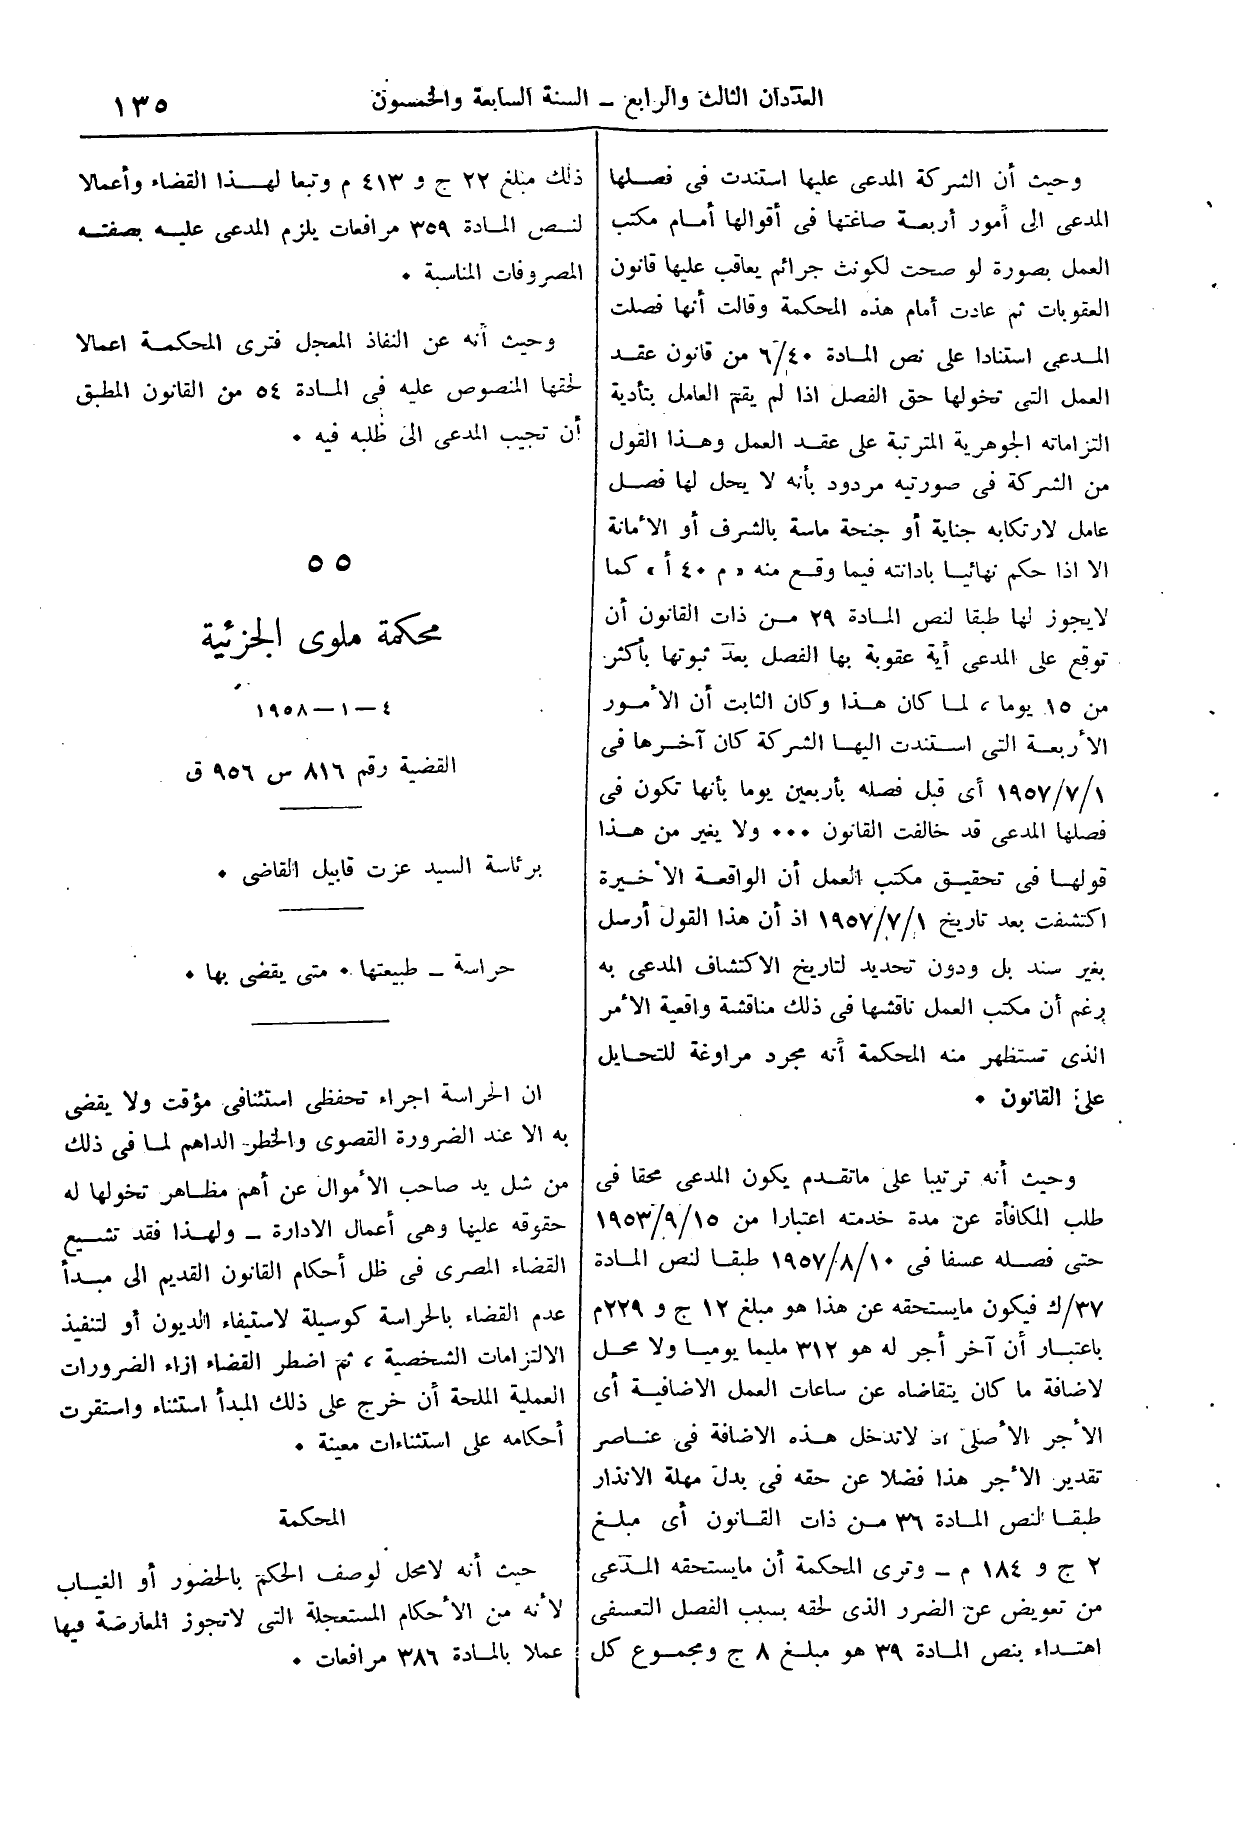 العددان الثالث والرابع – السنة السابعة والخمسون
١٣٥
وحيث أن الشركة المدعى عليها استندت فى فصلها
المدعى الى أمور أربعة صاغتها فى أقوالها أمام مكتب
العمل بصورة لو صحت لكونت جرائم يعاقب عليها قانون
العقوبات ثم عادت أمام هذه المحكمة وقالت أنها فصلت
المدعى استنادا على نص المادة ٦/٤٠ من قانون عقد
العمل التى تخولها حق الفصل اذا لم يقم العامل بتأدية
التزاماته الجوهرية المترتبة على عقد العمل وهذا القول
من الشركة فى صورتيه مردود بأنه لا يحل لها فصل
عامل لارتكابه جناية أو جنحة ماسة بالشرف أو الأمانة
الا اذا حكم نهائيا بادانته فيما وقع منه « م ٤٠ أ » كما
لايجوز لها طبقا لنص المادة ٢٩ من ذات القانون أن
توقع على المدعى أية عقوبة بها الفصل بعد ثبوتها بأكثر
من ١٥ يوما ، لما كان هذا وكان الثابت أن الأمور
الأربعة التى استندت اليها الشركة كان آخرها فى
١٩٥٧/٧/١ أى قبل فصله بأربعين يوما بأنها تكون فى
فصلها المدعى قد خالفت القانون ٠٠٠ ولا يغير من هذا
قولها فى تحقيق مكتب العمل أن الواقعة الأخيرة
اكتشفت بعد تاريخ ١٩٥٧/٧/١ اذ أن هذا القول أرسل
بغير سند بل ودون تحديد لتاريخ الاكتشاف المدعى به
رغم أن مكتب العمل ناقشها فى ذلك مناقشة واقعية الأمر
الذى تستظهر منه المحكمة أنه مجرد مراوغة للتحايل
على القانون ٠
وحيث أنه ترتيبا على ماتقدم يكون المدعى محقا فى
طلب المكافأة عن مدة خدمته اعتبارا من ١٩٥٣/٩/١٥
حتى فصله عسفا فى ١٩٥٧/٨/١٠ طبقا لنص المادة
٣٧/ك فيكون مايستحقه عن هذا هو مبلغ ١٢ ج و ٢٢٩م
باعتبار أن آخر أجر له هو ٣١٢ مليما يوميا ولا محل
لاضافة ما كان يتقاضاه عن ساعات العمل الاضافية أى
الأجر الأصلى اذ لاتدخل هذه الاضافة فى عناصر
تقدير الأجر هذا فضلا عن حقه فى بدل مهلة الانذار
طبقا لنص المادة ٣٦ من ذات القانون أى مبلغ
٢ ج و ١٨٤ م – وترى المحكمة أن مايستحقه المدعى
من تعويض عن الضرر الذى لحقه بسبب الفصل التعسفى
اهتداء بنص المادة ٣٩ هو مبلغ ٨ ج ومجموع كل
ذلك مبلغ ٢٢ ج و ٤١٣ م وتبعا لهذا القضاء وأعمالا
لنص المادة ٣٥٩ مرافعات يلزم المدعى عليه بصفته
المصروفات المناسبة ٠
وحيث أنه عن النفاذ المعجل فترى المحكمة اعمالا
لحقها المنصوص عليه فى المادة ٥٤ من القانون المطبق
أن تجيب المدعى الى طلبه فيه ٠
٥٥
محكمة ملوى الجزئية
٤ – ١ – ١٩٥٨
القضية رقم ٨١٦ س ٩٥٦ ق
برئاسة السيد عزت قابيل القاضى ٠
حراسة – طبيعتها ٠ متى يقضى بها ٠
ان الحراسة اجراء تحفظى استثنافى مؤقت ولا يقضى
به الا عند الضرورة القصوى والخطر الداهم لما فى ذلك
من شل يد صاحب الأموال عن أهم مظاهر تخولها له
حقوقه عليها وهى أعمال الادارة – ولهذا فقد تشبع
القضاء المصرى فى ظل أحكام القانون القديم الى مبدأ
عدم القضاء بالحراسة كوسيلة لاستيفاء الديون أو لتنفيذ
الالتزامات الشخصية ، ثم اضطر القضاء ازاء الضرورات
العملية الملحة أن خرج على ذلك المبدأ استثناء واستقرت
أحكامه على استثناءات معينة ٠
المحكمة
حيث أنه لامحل لوصف الحكم بالحضور أو الغياب
لأنه من الأحكام المستعجلة التى لاتجوز المعارضة فيها
عملا بالمادة ٣٨٦ مرافعات ٠